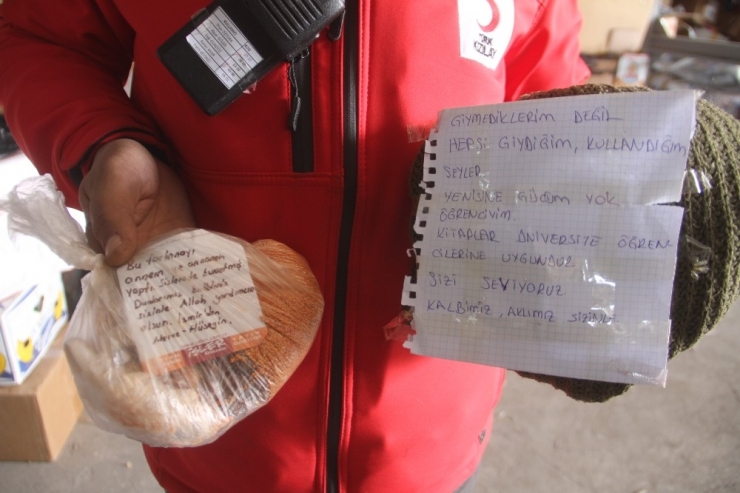 TÜRK
KIZILAY
GİYMEDİKLERİM DEĞİL
HEPSİ GİYDİĞİM, KULLANDIĞIM
ŞEYLER
YENİSİNE GÜCÜM YOK
ÖĞRENCİYİM.
KİTAPLAR ÜNİVERSİTE ÖĞREN
CİLERİNE UYGUNDUR
SİZİ SEVİYORUZ
KALBİMİZ, AKLIMIZ SİZİNLE
Bu tarhanayı
annem
yaptı. Sizlerle
Dualarımız
sizinle. Allah yardımcınız
olsun. İzmir'den
Hüseyin.